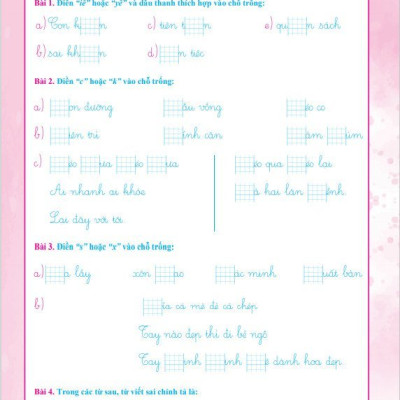 Bài 1. Điền "iê" hoặc "yê" và dấu thanh thích hợp vào chỗ trống:
a) Con k n c) tiên t n e) qu n sách
b) sai kh n d) n tiệc
Bài 2. Điền "c" hoặc "k" vào chỗ trống:
a) on đường ầu vồng éo co
b) iên trì ính cận ằm ụm
c) éo ưa éo ưa éo qua éo lại
Ai nhanh ai khỏe ả hai lần ềnh
Lại đây với tôi
Bài 3. Điền "s" hoặc "x" vào chỗ trống:
a) a lầy xôn ao ác minh uất bản
b) ìa cá mè đè cá chép
Tay nào đẹp thì đi bẻ ngô
Tay inh inh ẽ dành hoa đẹp.
Bài 4. Trong các từ sau, từ viết sai chính tả là: